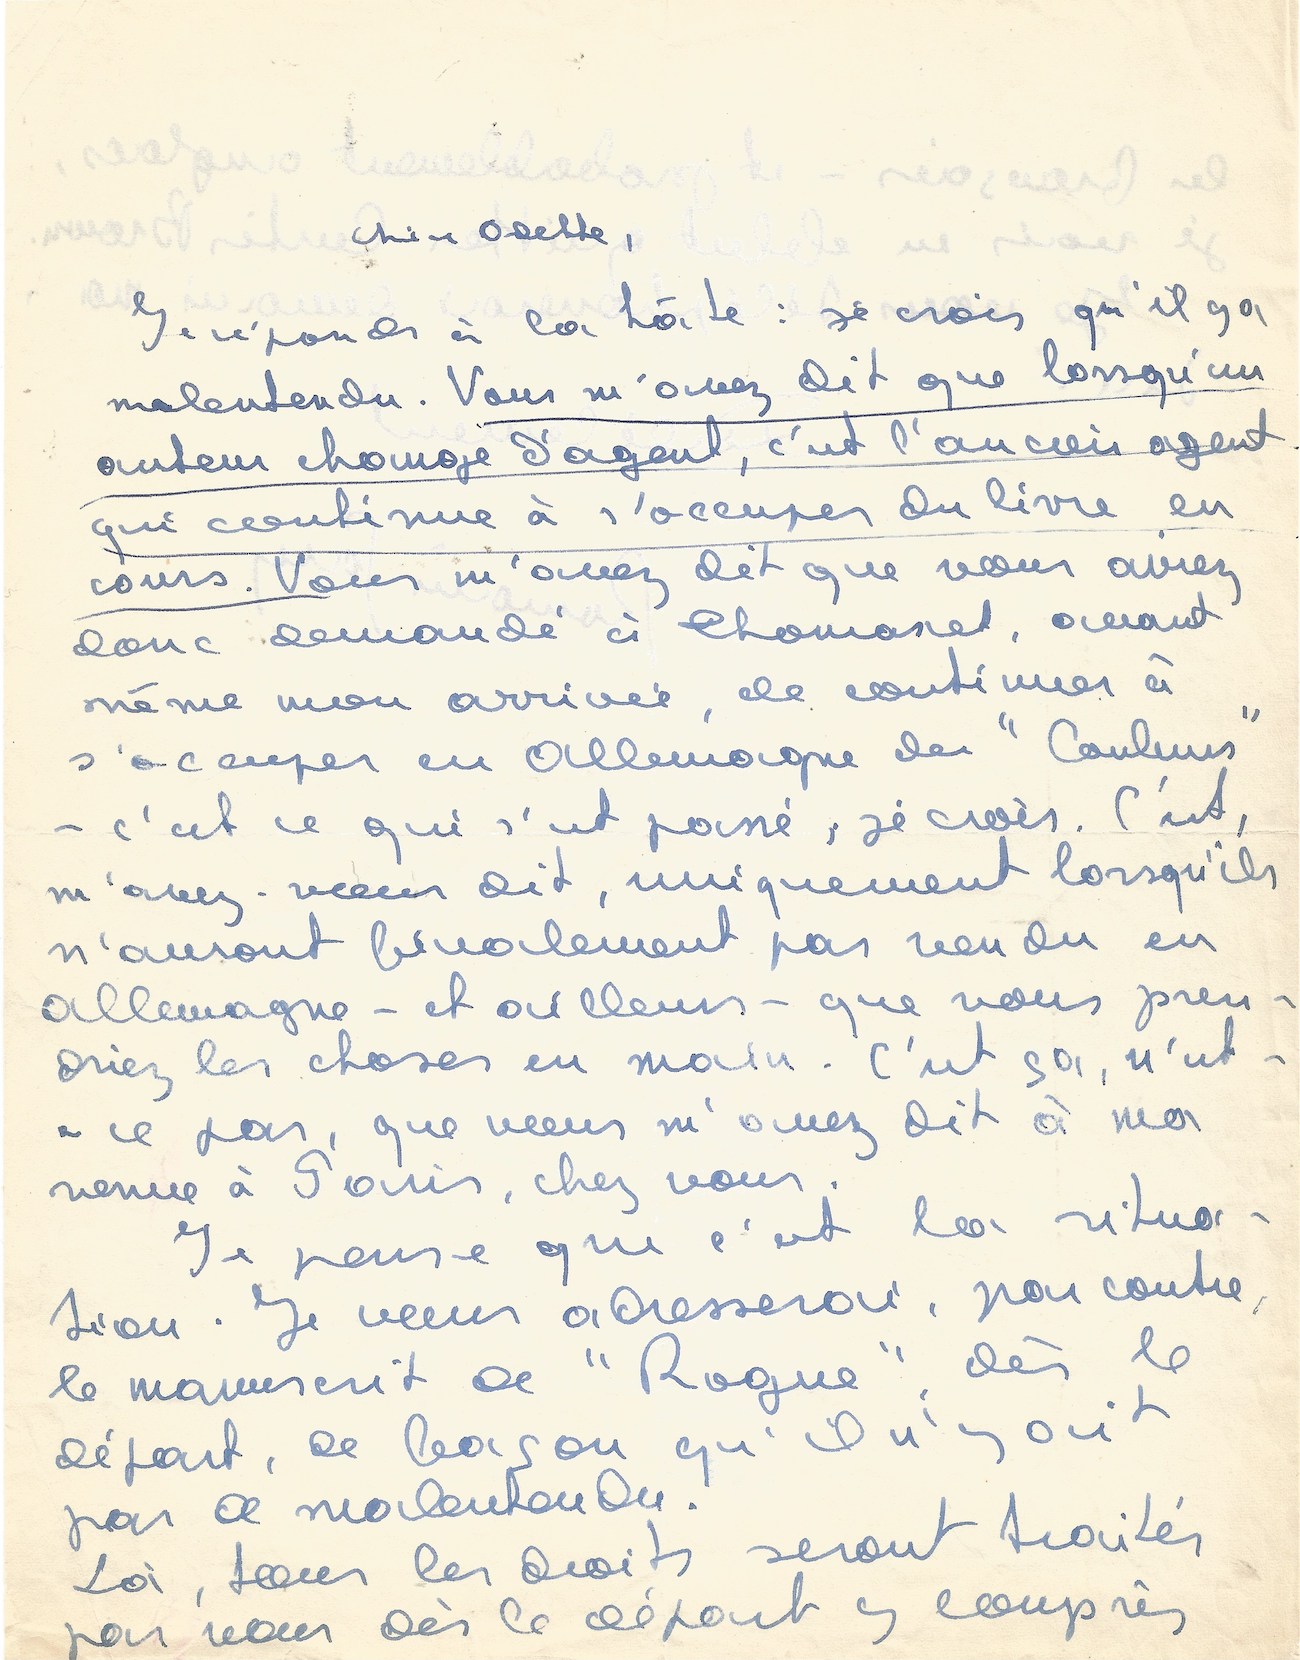 Chère Odette,
Je réponds à la hâte : je crois qu'il y a
malentendu. Vous m'avez dit que lorsqu'un
auteur change d'agent, c'est l'ancien agent
qui continue à s'occuper du livre en
cours. Vous m'avez dit que vous aviez
donc demandé à Thomaset, avant
même mon arrivée, de continuer à
s'occuper en Allemagne des "Couleurs"
- c'est ce qui s'est passé, je crois. C'est,
m'avez-vous dit, uniquement lorsqu'ils
n'auront finalement pas vendu en
Allemagne - et ailleurs - que vous pren-
driez les choses en main. C'est ça, n'est-
- ce pas, que vous m'avez dit à ma
venue à Paris, chez vous.
Je pense que c'est la situa-
tion. Je vous adresserai, par contre,
le manuscrit de "Rogue", dès le
départ, de façon qu'il n'y ait
pas de malentendu.
Là, tous les droits seront traités
par vous dès le départ y compris